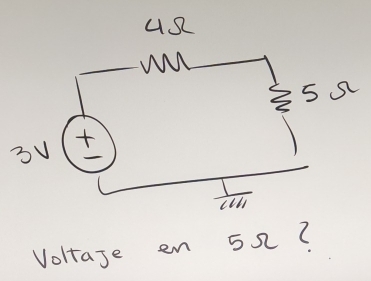 4Ω
5 Ω
3V
+
−
Voltaje en 5Ω ?